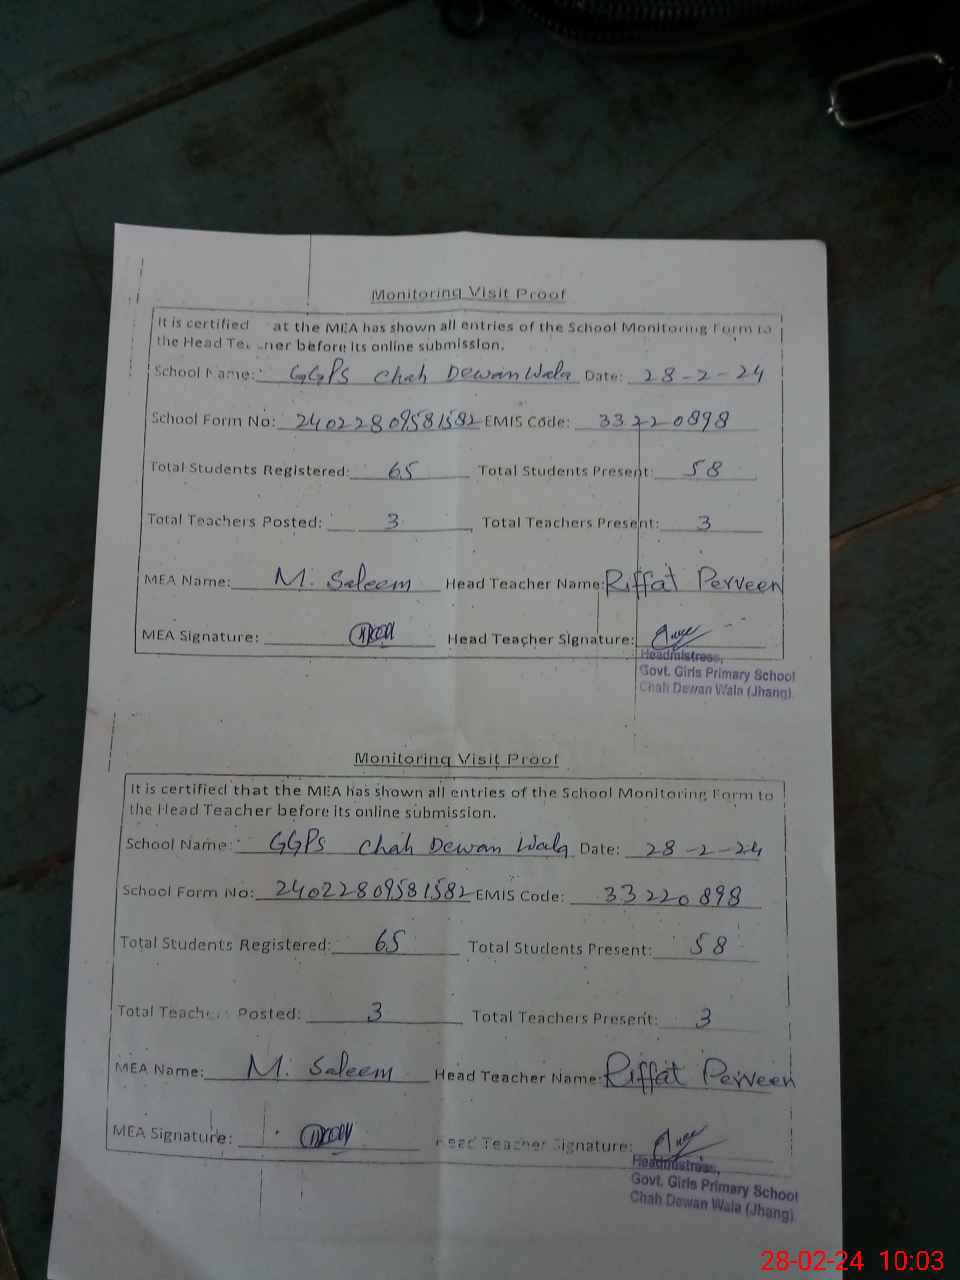 Monitoring Visit Proof
It is certified at the MEA has shown all entries of the School Monitoring Form to
the Head Te ner before its online submission.
School Name: GGPS Chah Dewan Wala Date: 28-2-24
School Form No: 24022809581582 EMIS Code: 33220898
Total Students Registered: 65 Total Students Present: 58
Total Teachers Posted: 3 Total Teachers Present: 3
MEA Name: M. Saleem Head Teacher Name: Riffat Perveen
MEA Signature: Head Teacher Signature:
Headmistress,
Govt. Girls Primary School
Chah Dewan Wala (Jhang)
Monitoring Visit Proof
It is certified that the MEA has shown all entries of the School Monitoring Form to
the Head Teacher before its online submission.
School Name: GGPS Chah Dewan Wala Date: 28-2-24
School Form No: 24022809581582 EMIS Code: 33220898
Total Students Registered: 65 Total Students Present: 58
Total Teachers Posted: 3 Total Teachers Present: 3
MEA Name: M. Saleem Head Teacher Name: Riffat Perveen
MEA Signature: Head Teacher Signature:
Headmistress,
Govt. Girls Primary School
Chah Dewan Wala (Jhang)
28-02-24 10:03